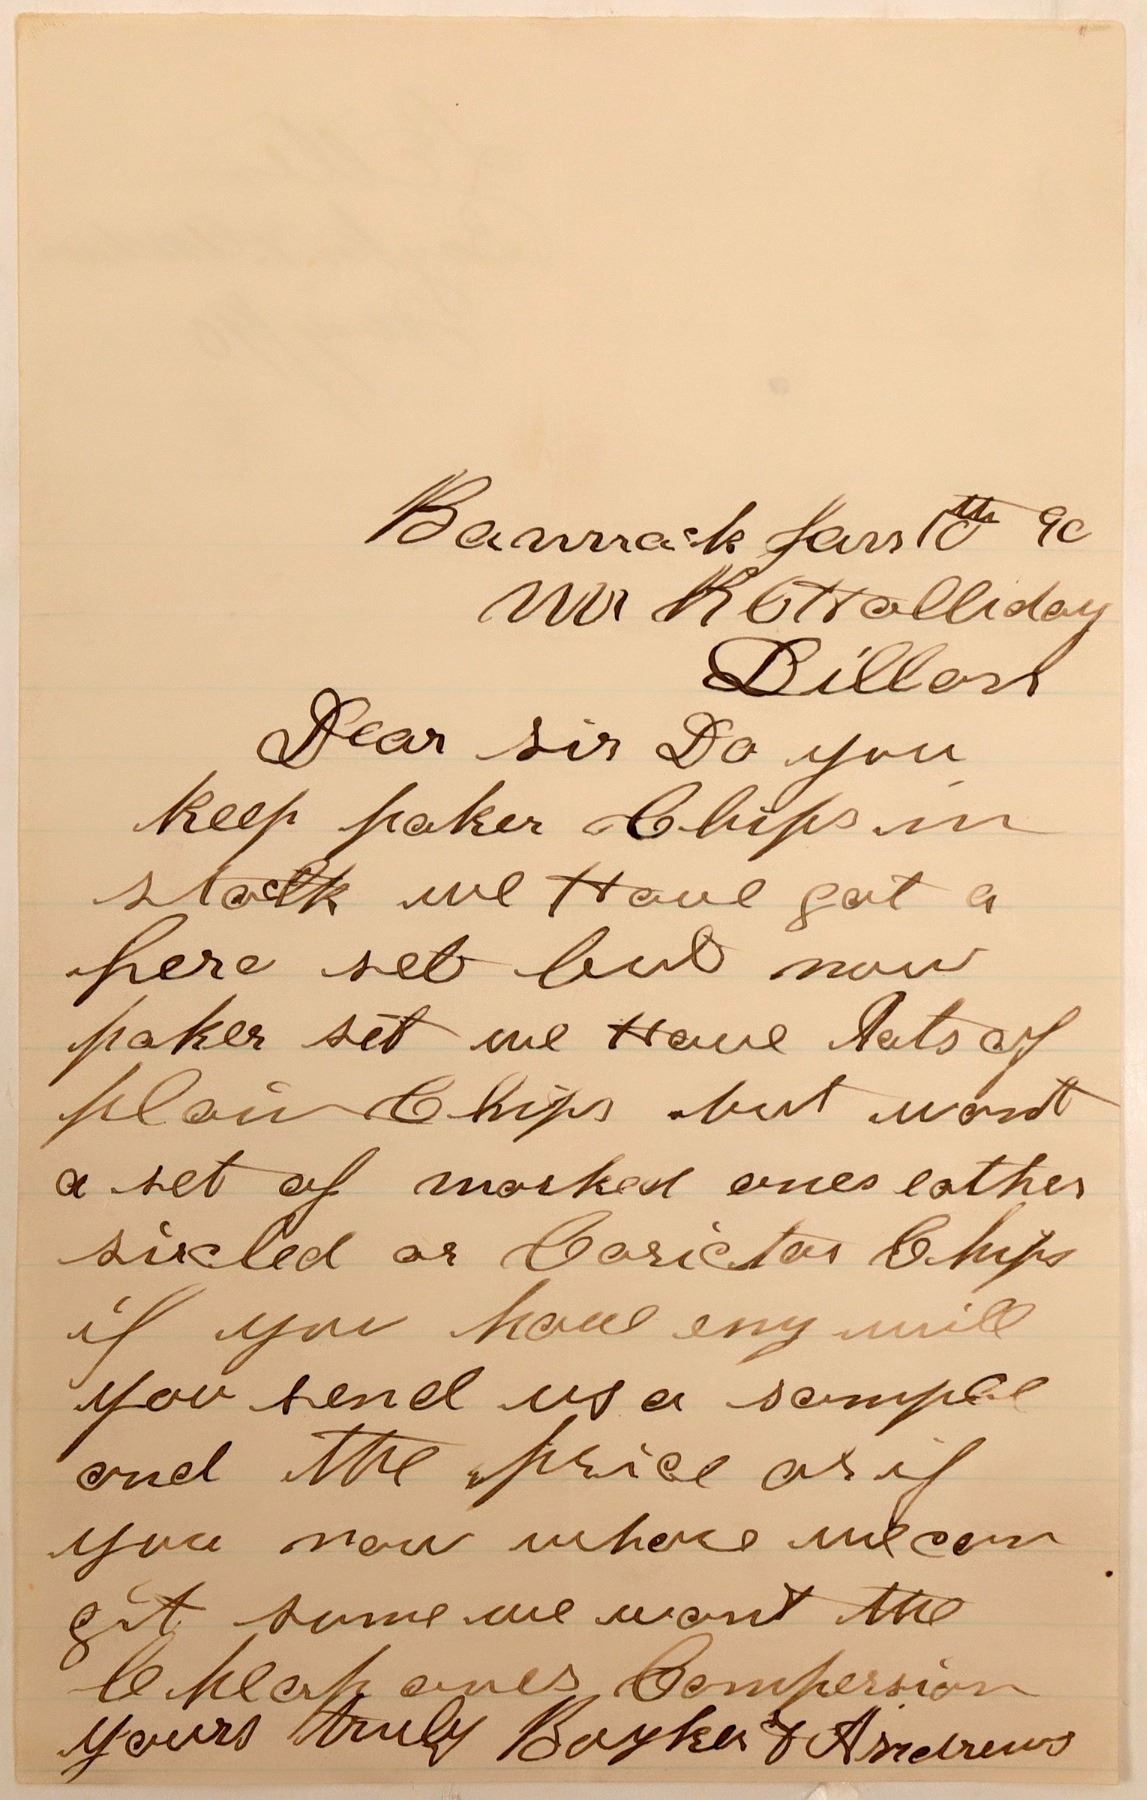 Bannack Jan 10th 90
Mr R E Halliday
Dillon
Dear sir Do you
keep poker Chips in
stock we Have got a
fero set but now
poker set we Have lots of
plain Chips but want
a set of marked ones eather
sircled or Carictor Chips
if you have eny will
you send us a sample
and the price or if
you now whare we can
git some we want the
Cheap ones Compersion
yours truly Boyker & Andrews